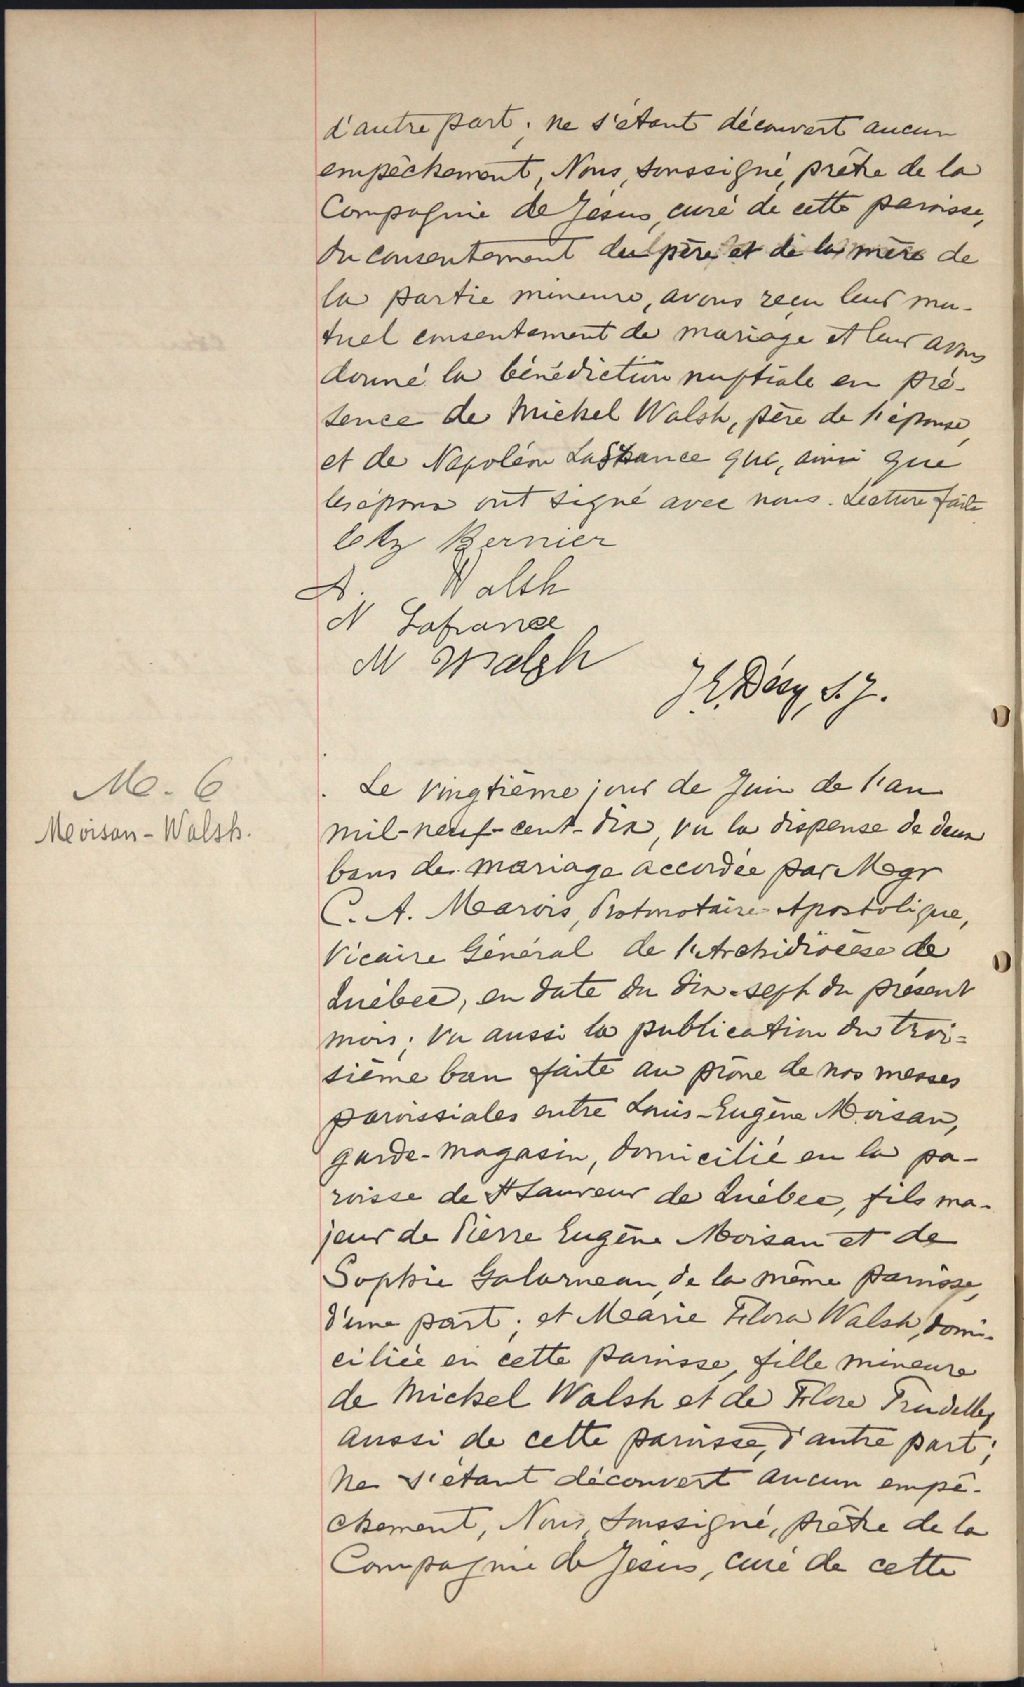 d'autre part; ne s'étant découvert aucun
empêchement, Nous, soussigné, prêtre de la
Compagnie de Jésus, curé de cette paroisse,
du consentement du père et de la mère de
la partie mineure, avons reçu leur mu-
tuel consentement de mariage et leur avons
donné la bénédiction nuptiale en pré-
sence de Mickel Walsh, père de l'épouse,
et de Napoléon Lafrance que, ainsi que
les époux ont signé avec nous. Lecture faite
Bernier
A. Walsh
N Lafrance
M Walsh
J. E. Désy, S. J.
M. 6
Moisan - Walsh.
Le vingtième jour de Juin de l'an
mil-neuf-cent-dix, vu la dispense de deux
bans de mariage accordée par Mgr
C. A. Marois, Protonotaire Apostolique,
Vicaire Général de l'Archidiocèse de
Québec, en date du dix-sept du présent
mois; vu aussi la publication du troi=
sième ban faite au prône de nos messes
paroissiales entre Louis-Eugène Moisan,
garde-magasin, domicilié en la pa-
roisse de St Sauveur de Québec, fils ma-
jeur de Pierre Eugène Moisan et de
Sophie Galarneau, de la même paroisse,
d'une part; et Marie Flora Walsh, domi-
ciliée en cette paroisse, fille mineure
de Mickel Walsh et de Flore Trudelle,
aussi de cette paroisse, d'autre part;
Ne s'étant découvert aucun empê-
chement, Nous, soussigné, prêtre de la
Compagnie de Jésus, curé de cette